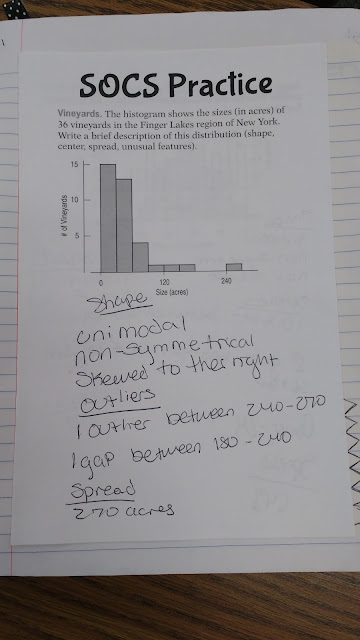 SOCS Practice
Vineyards. The histogram shows the sizes (in acres) of
36 vineyards in the Finger Lakes region of New York.
Write a brief description of this distribution (shape,
center, spread, unusual features).
15
10
5
# of Vineyards
0
120
240
Size (acres)
Shape
unimodal
non-symmetrical
Skewed to the right
outliers
1 outlier between 240-270
1 gap between 180-240
Spread
270 acres